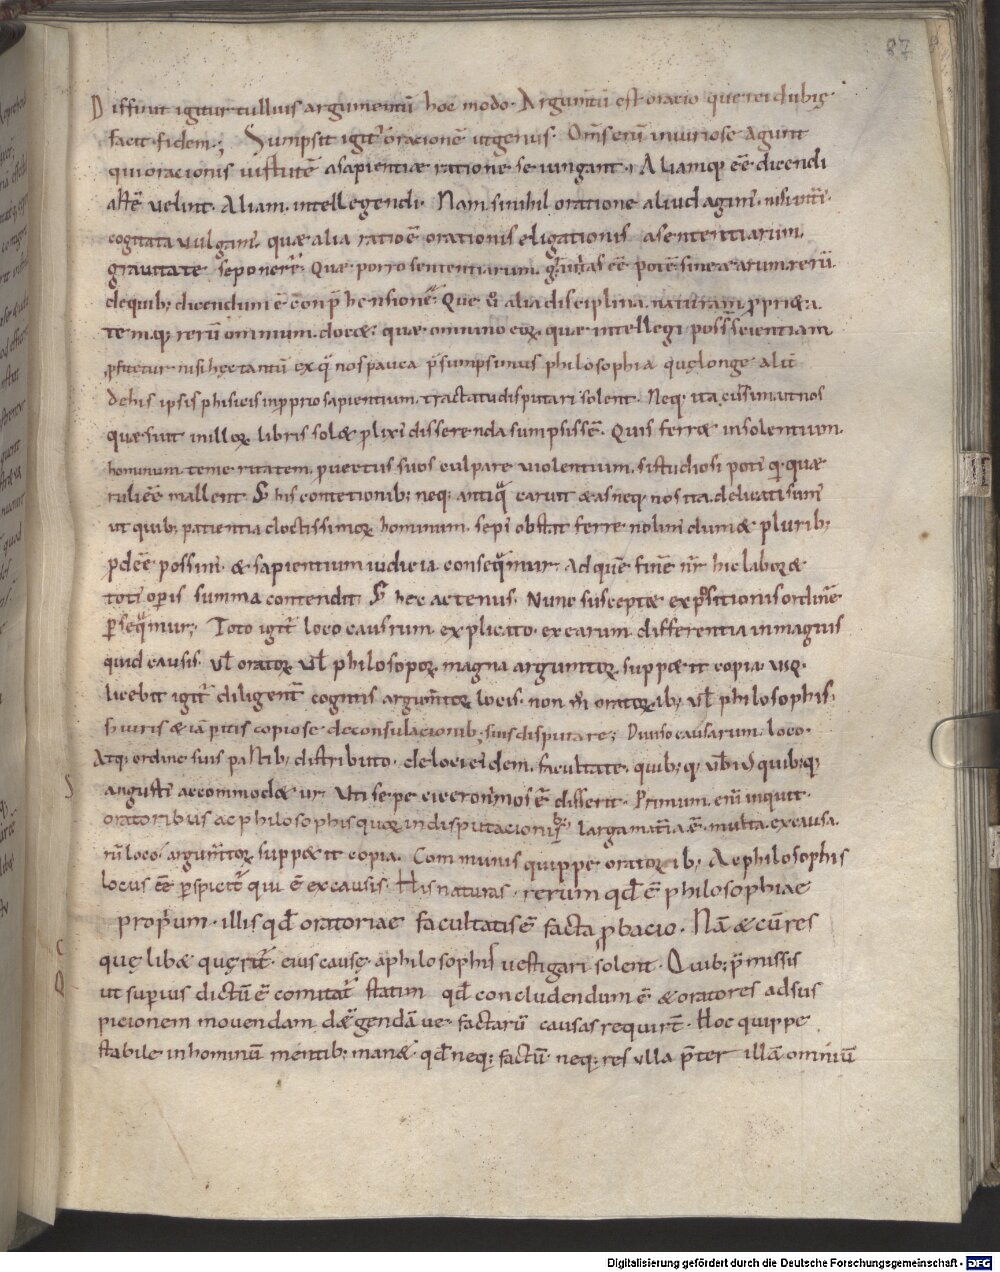 87
Diffinit igitur tullius argumentū hoc modo. Argumtū est oracio que rei dubię
facit fidem; Sumpsit igit oracionē ut genus. Omēs enī iniuriose agunt
qui oracionis uirtutē a sapientiae ratione seiungant. Aliamq; eē dicendi
artē uelint. Aliam. intellegendi. Nam si nihil oratione aliud agim. nisi ut
cogitata vulgam. quae alia ratio ē orationis eligationis a sententiarum.
grauitate seponere. Quae porro sententiarum. grauitas eē potē sine earum rerū.
de quib; dicendum ē conp̄hensione. Que u alia disciplina. naturam p̱priā &
tem.q; rerū omnium. docā; quae omnino eoꝝ quae intellegi poss scientiam
p̱fitetur nisi hęc tantū ex q̄ nos pauca p̄sumpsimus philosophia quę longe alit
de his ipsis phisicis in p̱prio sapientium. tractatu disputari solent. Neq. ita. ut nos
quaesiuit in illoꝝ libris sol& plixi disserenda sumpsissē. Quis ferr& insolentium.
hominum temeritatem. puersus suos culpare uiolentium. si studiosi poti q quae
mallent S his contetionib; neq; antiq caruit &as neq nos ita. deluati sum
ut quib; patientia doctissimoꝝ hominum. sepi obstat ferre nolim dum & plurib;
p̱deē possim. & sapientium iudicia conseq̄mur. Ad quē finē nr̄ hic labor &
toti opis summa contendit S hec actenus. Nunc susceptae expositionis ordinē
p̱seq̄mur; Toto igit loco causrum. explicato. ex earum differentia in magnis
quid causis. ut oratoꝝ. ut philosopoꝝ. magna argumtoꝝ suppetit copia. usq.
licebit igit diligent cognitis argumtoꝝ locis. non m oratoꝝib; ut philosophis.
S iuris & iā pitis copiose de consulacionib; suis disputare; Diuiso causarum. loco.
Atq; ordine suis partib; distributo. de loci eidem. facultate. quib; q. ut quib;q
angusti accommodetur. Uti sepe ciceroni mos ē disserit. Primum. eni inquit.
oratoribus ac philosophis quae in disputacionib; larga matia ē. multa. ex causa.
nū loco. argumtoꝝ suppetit copia. Communis quippe oratoꝝib; Ac philosophis
locus eē perspicit qui ē ex causis. His naturas. rerum qd ē philosophiae
proprium. illis qd oratoriae facultatis ē facta p̱bacio. Nā & cū res
quę lib& quęrit. eius causę. a philosophis uestigari solent. Quib; p̄missis
ut superius dictū ē comitat statim qd concludendum ē & oratores ad sus
picionem mouendam. d&egendā ue factarū causas requirt. Hoc quippe
stabile in hominū mentib; man& qd neq; factū neq; res ulla p̄ter illā omniū
S
C
D
Digitalisierung gefördert durch die Deutsche Forschungsgemeinschaft - DFG